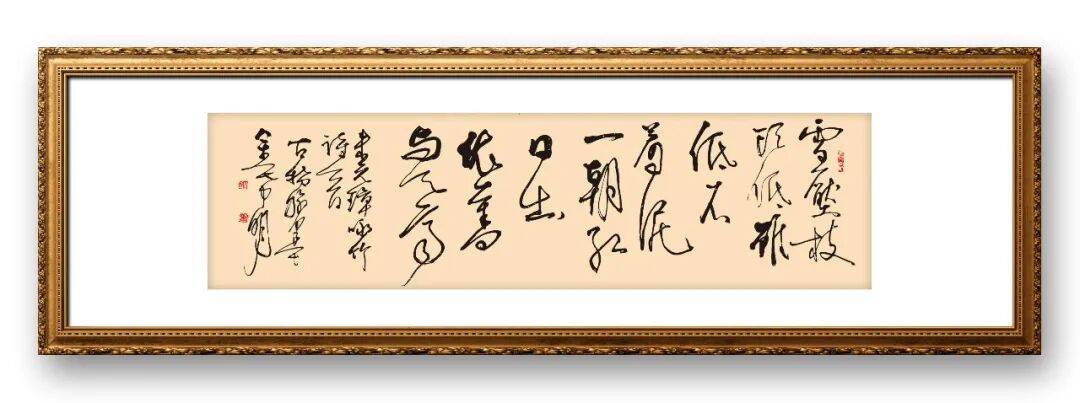 雪壓枝
头低雖
低不
着泥
一朝红
日出
依舊
与天齊
朱元璋咏竹
诗一首